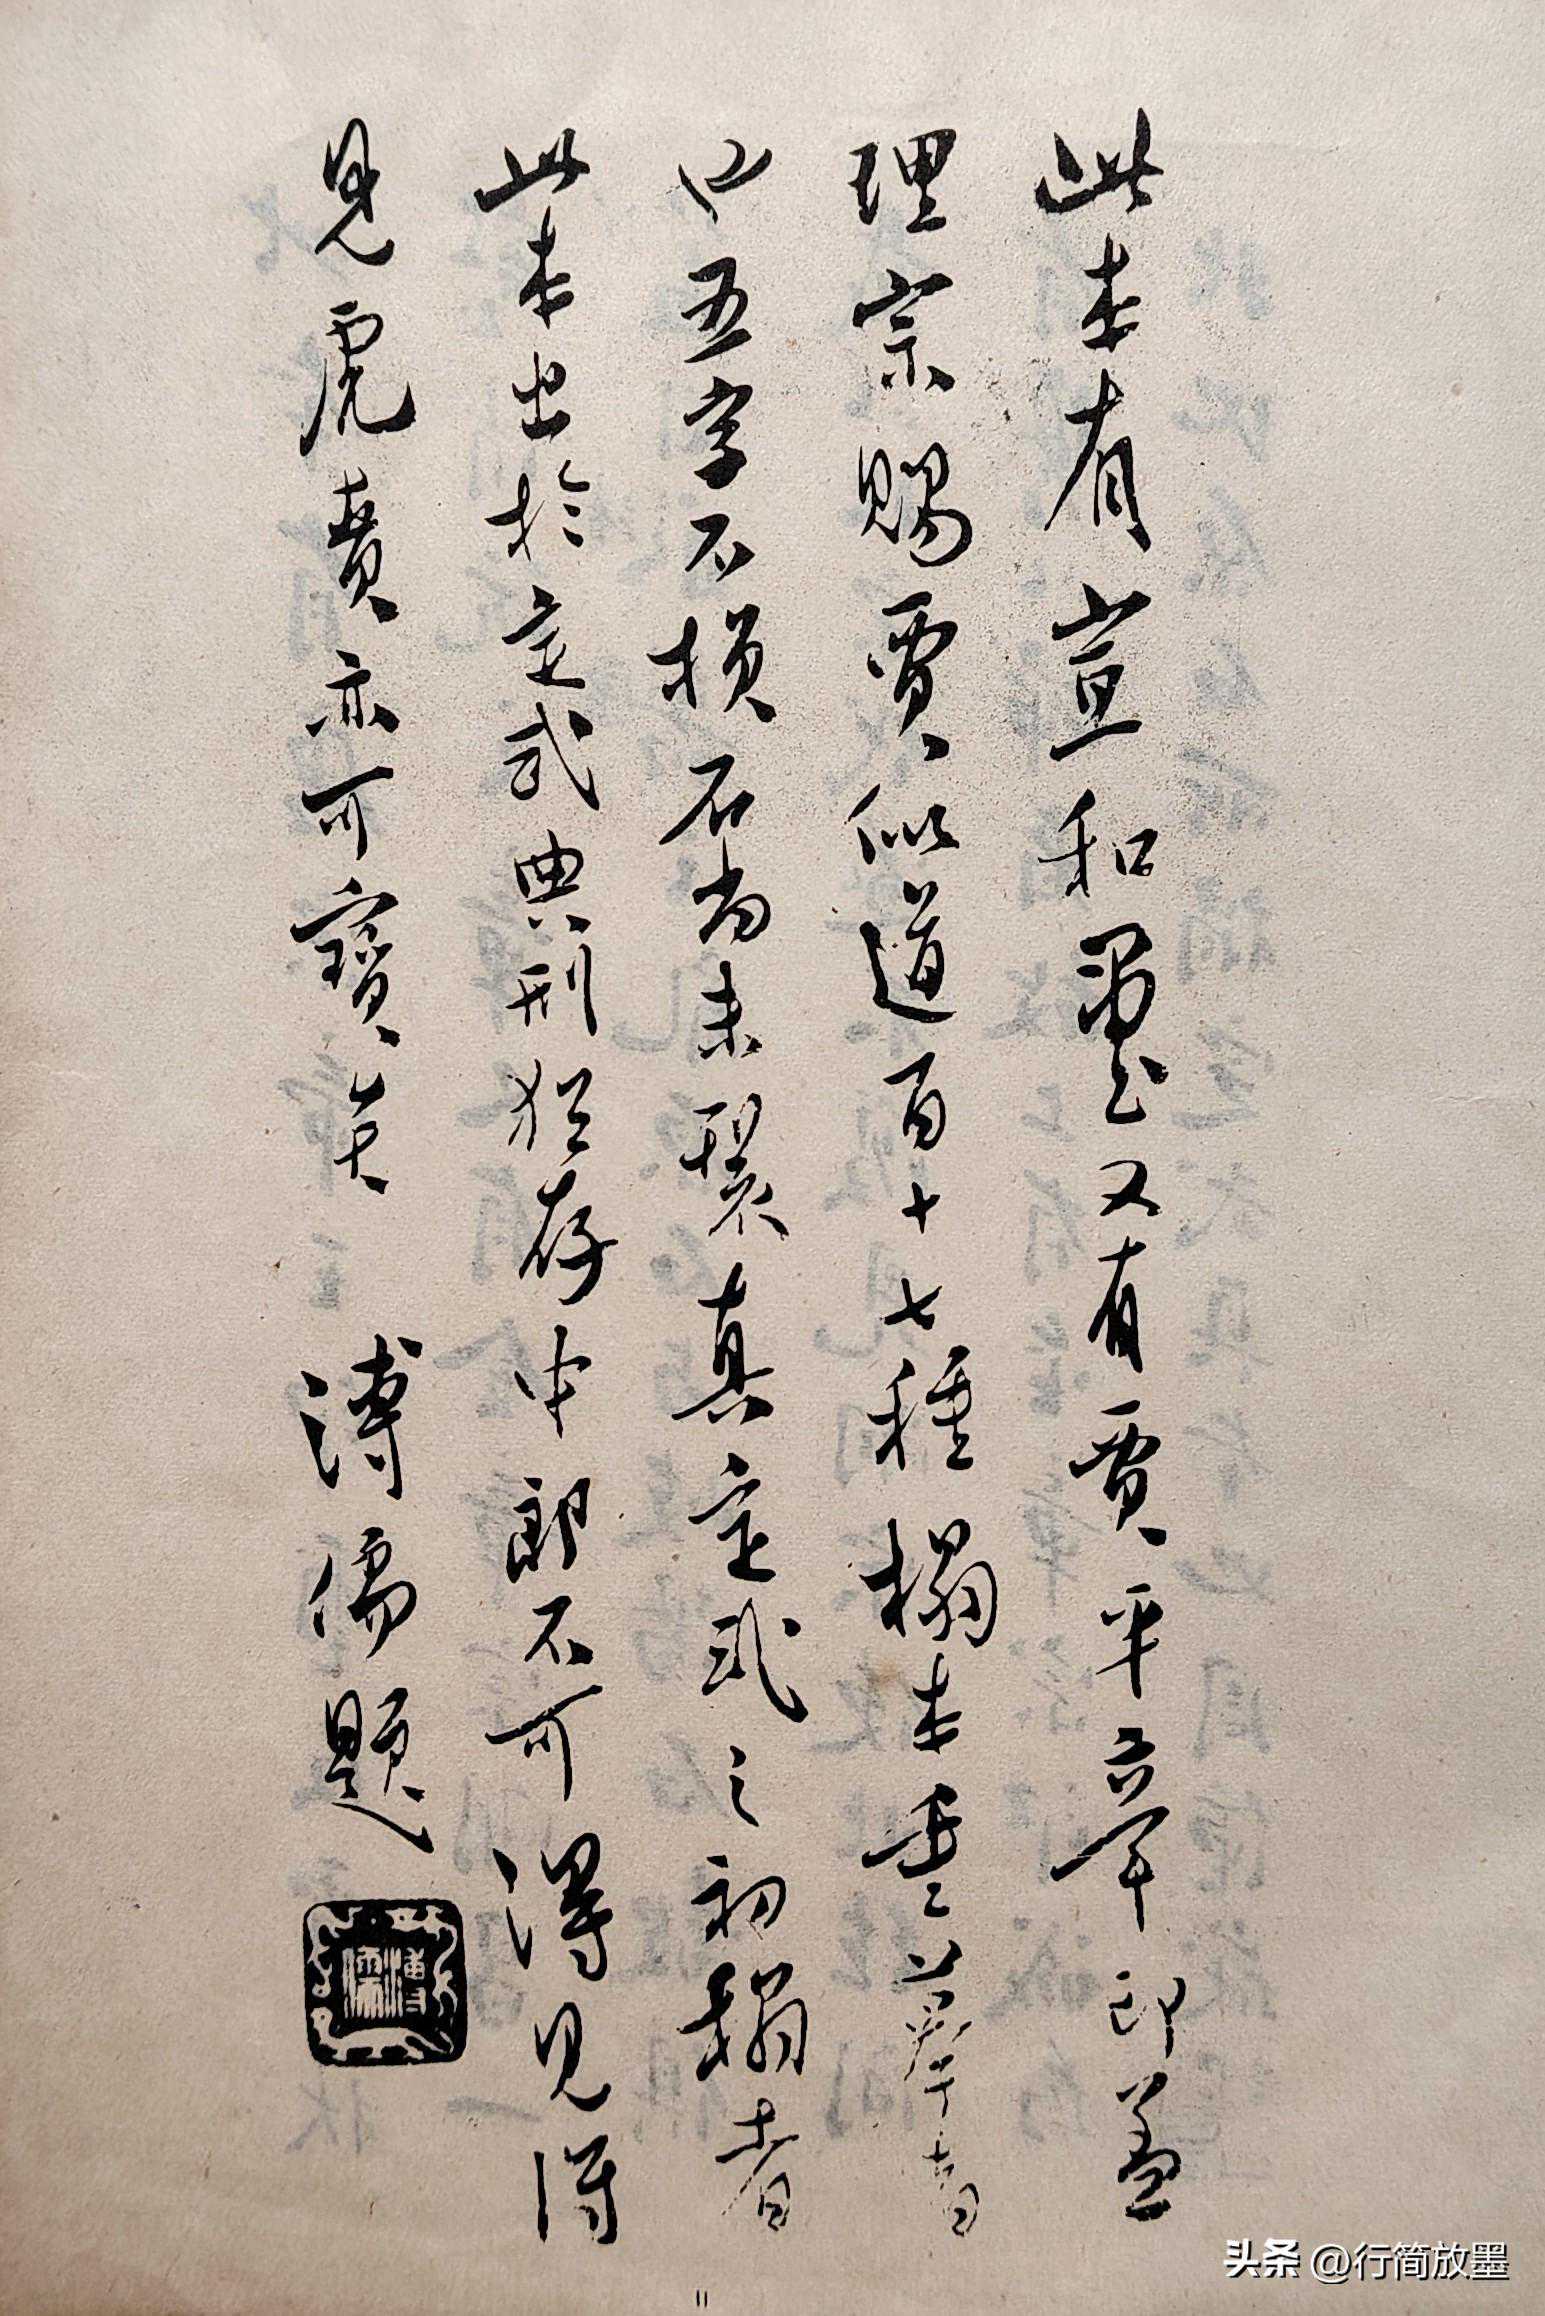 此本有宣和璽又有賈平章印蓋
理宗賜賈似道百十七種搨本重摹者
也五字不損石尚未裂真定武之初搨者
此本出於定武典刑猶存中郎不可得見得
見虎賁亦可寶矣 溥儒題
溥儒
头条 @行简放墨